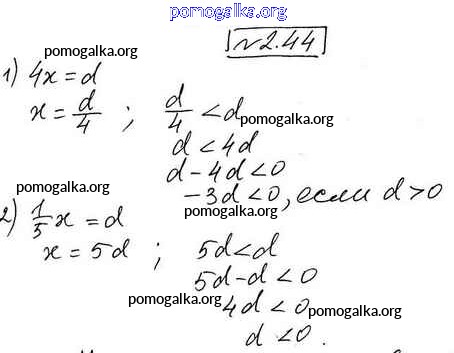 pomogalka.org
№2.44
pomogalka.org
1) 4x = d
x = d/4 ; d/4 < d
pomogalka.org
pomogalka.org
d < 4d
d - 4d < 0
pomogalka.org
-3d < 0, если d > 0
pomogalka.org
2) 1/5 x = d
x = 5d ; 5d < d
pomogalka.org
5d - d < 0
pomogalka.org
4d < 0
pomogalka.org
d < 0.